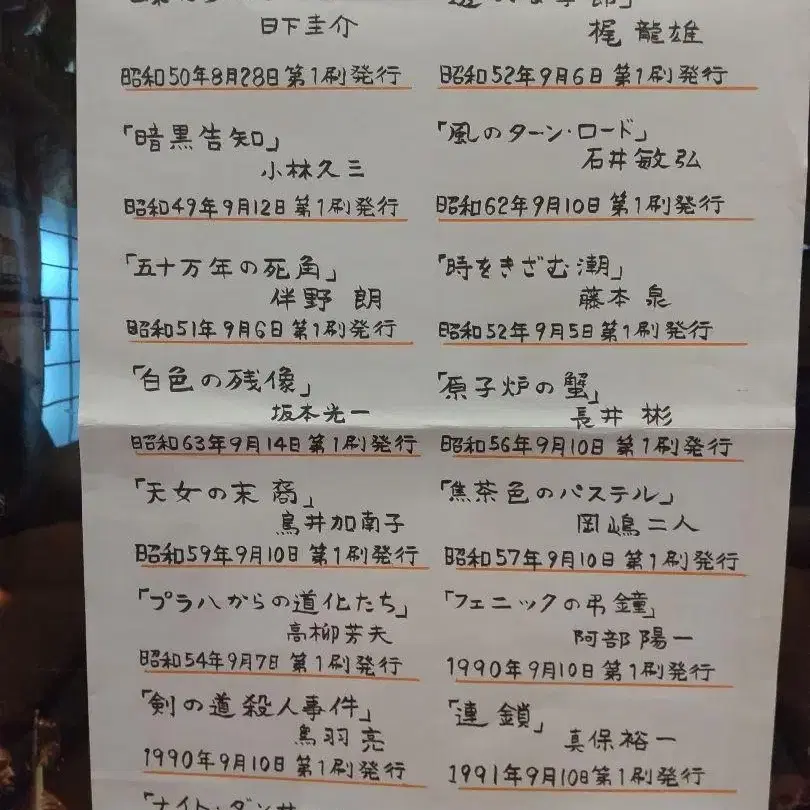 日下圭介
昭和50年8月28日第1刷発行
「暗黒告知」
小林久三
昭和49年9月12日第1刷発行
「五十万年の死角」
伴野 朗
昭和51年9月6日第1刷発行
「白色の残像」
坂本光一
昭和63年9月14日第1刷発行
「天女の末裔」
鳥井加南子
昭和59年9月10日第1刷発行
「プラハからの道化たち」
高柳芳夫
昭和54年9月7日第1刷発行
「剣の道殺人事件」
鳥羽 亮
1990年9月10日第1刷発行
梶 龍雄
昭和52年9月6日第1刷発行
「風のターン・ロード」
石井敏弘
昭和62年9月10日第1刷発行
「時をきざむ潮」
藤本 泉
昭和52年9月5日第1刷発行
「原子炉の蟹」
長井 彬
昭和56年9月10日第1刷発行
「焦茶色のパステル」
岡嶋二人
昭和57年9月10日第1刷発行
「フェニックの弔鐘」
阿部陽一
1990年9月10日第1刷発行
「連鎖」
真保裕一
1991年9月10日第1刷発行